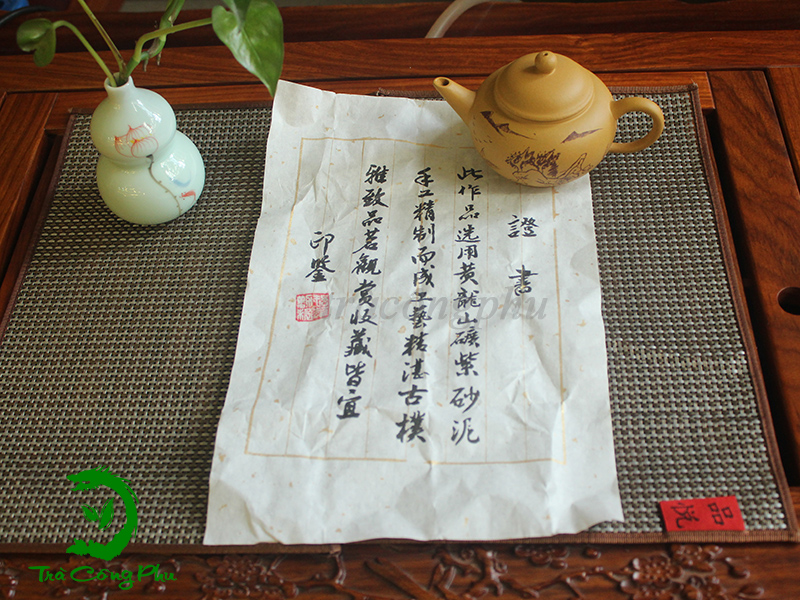 證書
此作品选用黄龍山礦紫砂泥
手工精制而成工藝精湛古樸
雅致品茗觀赏收藏皆宜
印鑒
tracongphu
品悦
Trà Công Phu